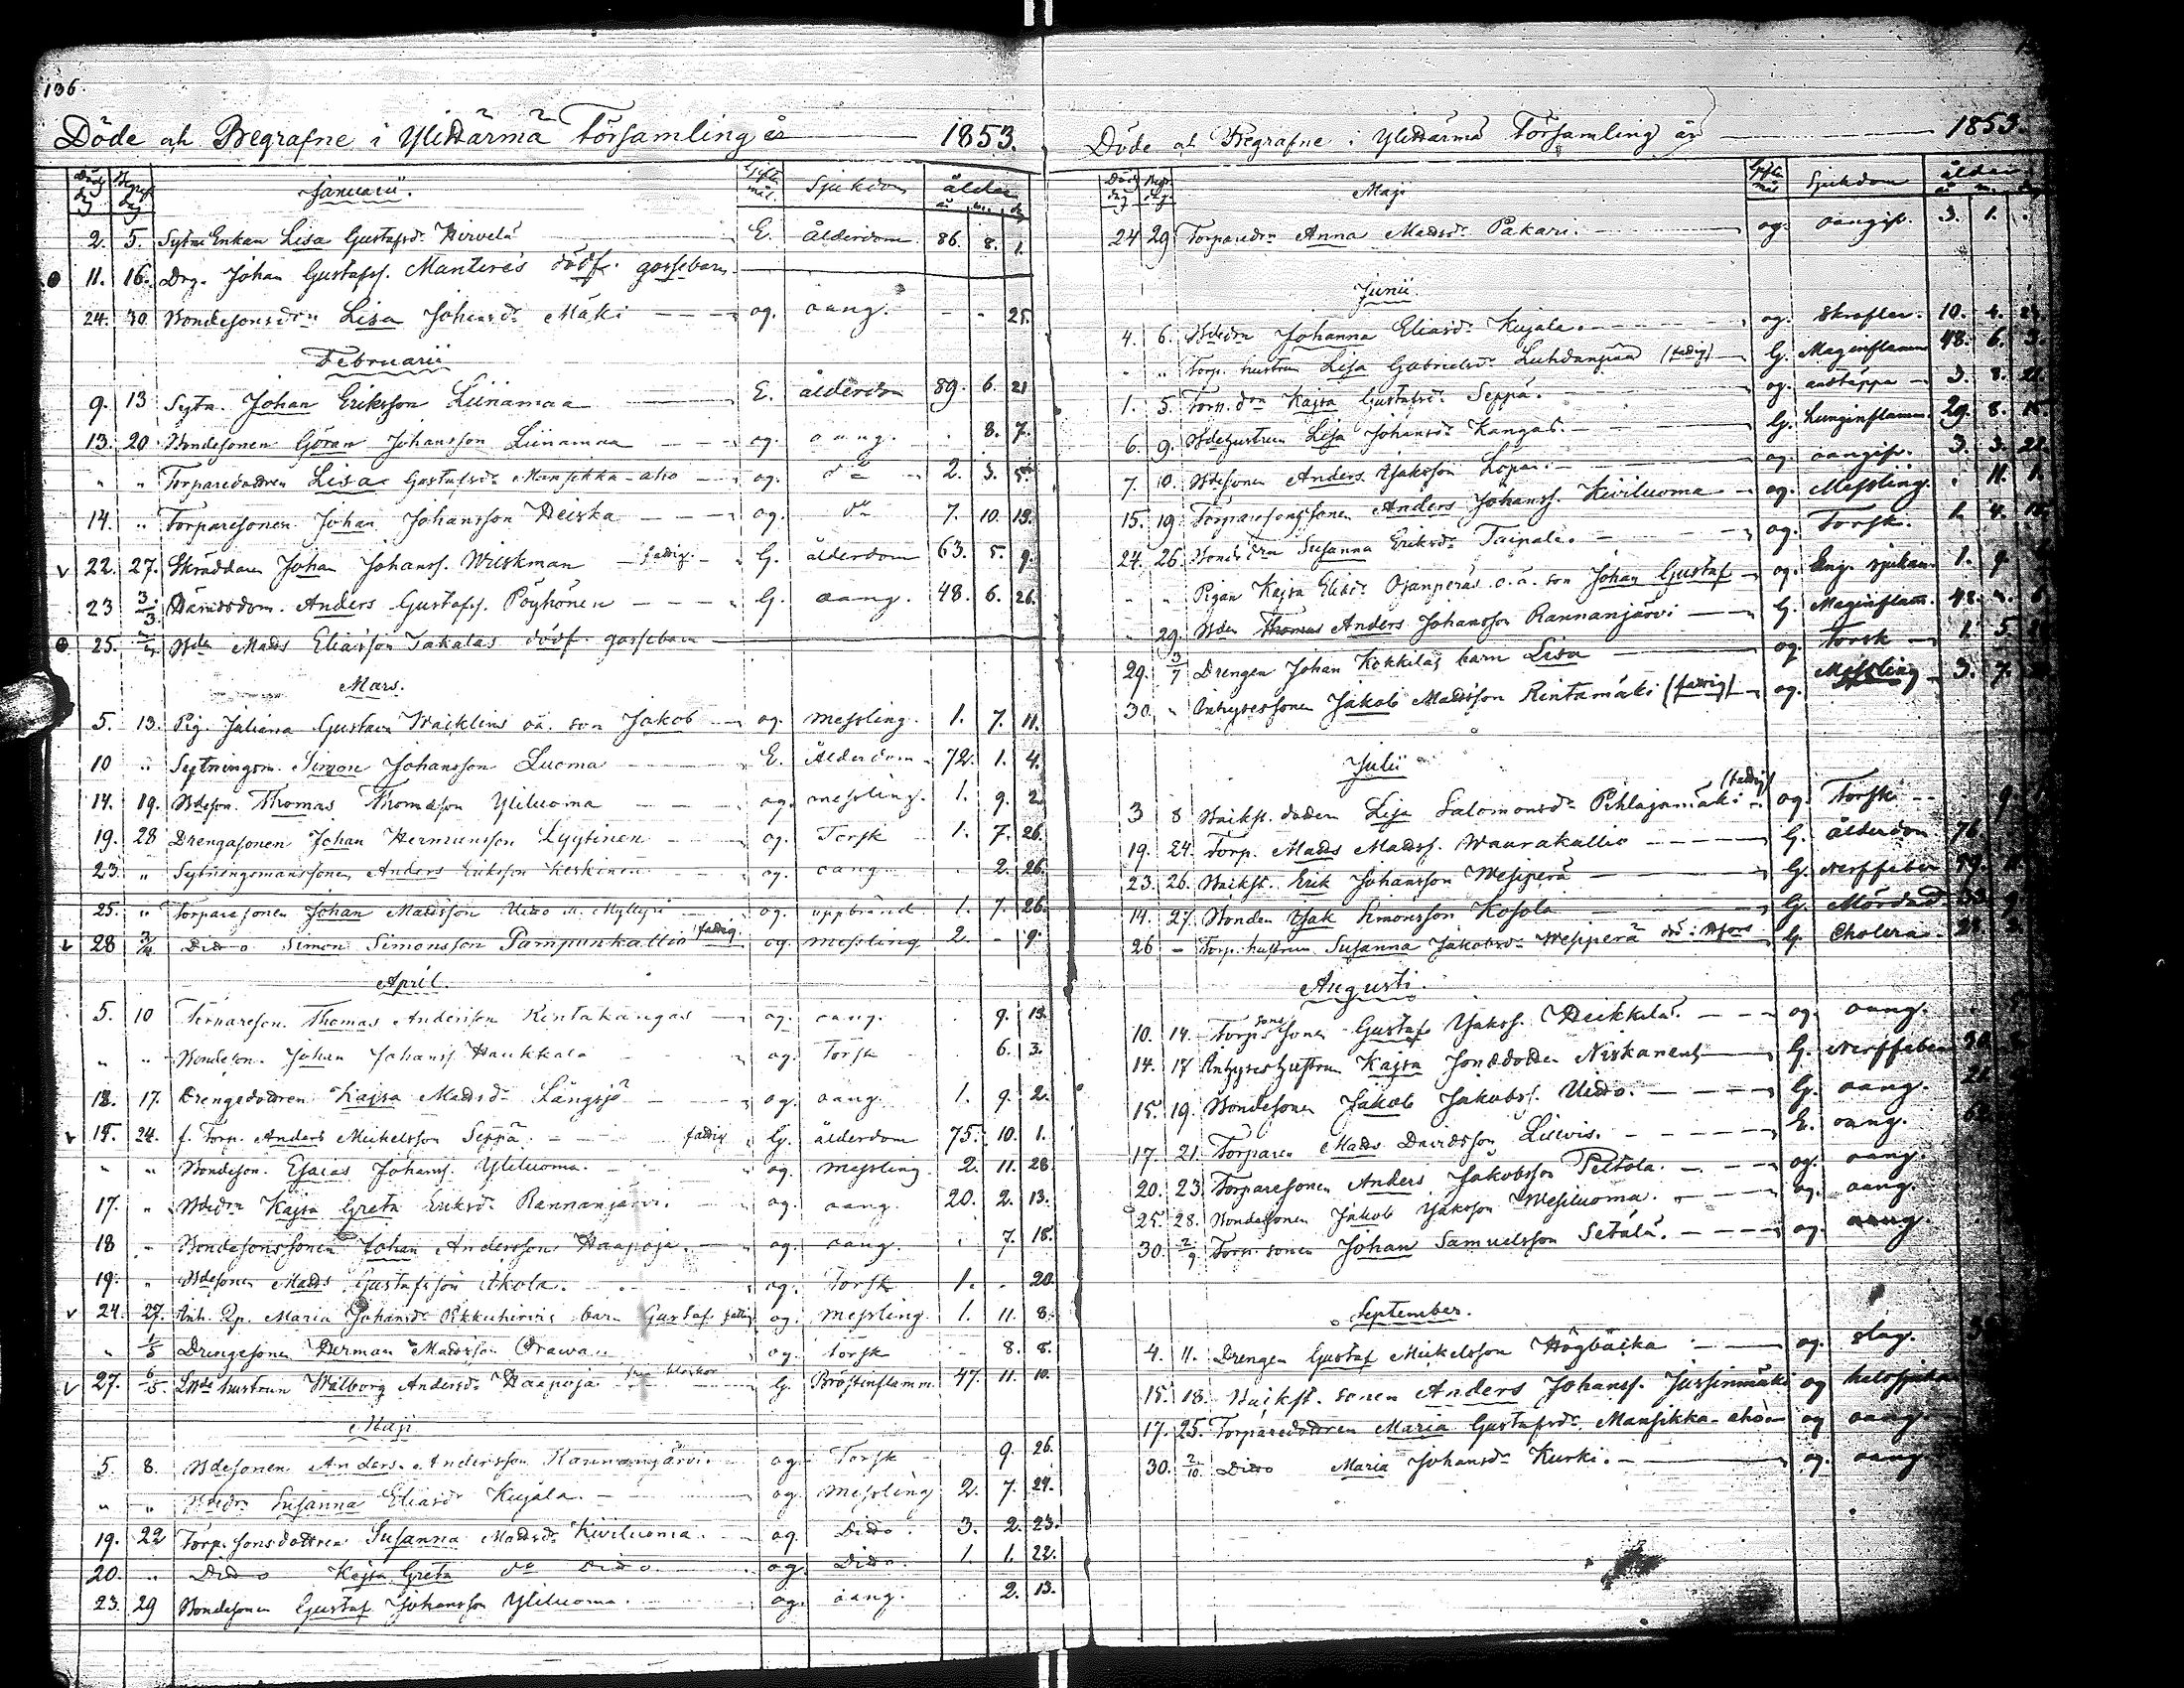 136.
Döde och Begrafne i Ylihärmä Församling år 1853.
Döds dag Begrf dag Januarii. Gifte mål. Sjukdom ålder år m. dag
2. 5. Sytne Enkan Lisa Gustafsdr Hirvelä E. ålderdom 86. 8. 1.
11. 16. Drg. Johan Gustafss. Manteres dödf. gossebarn
24. 30 Bondesonsdon Lisa Johansdr Mäki og. oang. - - 25.
Februarii
9. 13 Sytn. Johan Eriksson Liinamaa E. ålderdom 89. 6. 21
13. 20 Bondesonen Göran Johansson Liinamaa og. oang. . 8. 7.
" " Torparedottren Lisa Gustafsdr Mansikka-aho og. do 2. 3. 5.
14. " Torparesonen Johan Johansson Heiska og. do 7. 10. 19.
v 22. 27. Skräddaren Johan Johanss. Wiiskman fattig. G. ålderdom 63. 5. 9.
23 3/3 Anders Gustafss. Pöyhönen G. oang. 48. 6. 26.
25. Bden Matts Eliasson Takalas dödf. gossebarn
Mars.
5. 13. Pig. Juliana Gustava Wacklins oä. son Jakob og. messling. 1. 7. 11.
10 " Sytningsm. Simon Johansson Luoma E. Ålderdom 72. 1. 4.
14. 19. Bdeson. Thomas Thomasson Yliluoma og. messling. 1. 9. 2.
19. 28 Drengasonen Johan Hermansson Lyytinen og. Torsk 1. 7. 26.
23. " Sytningsmanssonen Anders Eriksson Keskinen og. oang . 2. 26.
25. " Torparesonen Johan Mattsson Uitto Myllyri og. uppbränd 1. 7. 26.
v 28 3/4 Ditto Simon Simonsson Pampunkallio fattig. og. messling 2. - 9.
April.
5. 10 Torpareson. Thomas Andersson Rintakangas og. oang. . 9. 13.
" " Bondeson. Johan Johanss. Haukkala og. Torsk . 6. 3.
12. 17. Drengedottren Kajsa Mattsdr Långsjö og. oang. 1. 9. 2.
v 15. 24. f. Torp. Anders Mickelsson Seppä. fattig G. ålderdom 75. 10. 1.
" " Bondeson. Esaias Johanss. Yliluoma. og. messling. 2. 11. 28.
17. " Bdedr Kajsa Greta Eriksdr Rannanjärvi. og. oang. 20. 2. 13.
18 " Bondesonssonen Johan Andersson Haapoja. og. oang. . 7. 18.
19. " Bdesonen Matts Gustafsson Ekola. og. Torsk 1. . 20.
v 24. 27. Inh. Pp. Maria Johansdr Pikkuhirvis barn Gustaf fattig og. messling. 1. 11. 8.
" 1/5 Drengesonen Herman Mattsson Orawan og. torsk - 8. 8.
v 27. 6/5. Bde hustrun Walborg Andersdr Haapoja G. Bröstinflamm. 47. 11. 10.
Maji
5. 8. Bdesonen Anders Andersson Rannanjärvi. og. Torsk 9. 26.
" " Bdedr Susanna Eliasdr Kujala. og. messling 2. 7. 24.
19. 22 Torp. sonsdottren Susanna Mattsdr Kiviluoma. og. Ditto. 3. 2. 23.
20. " Ditto Kajsa Greta dr Ditto og. Ditto. 1. 1. 22.
23. 29 Bondesonen Gustaf Johansson Yliluoma. og. oang. . 2. 13.
Döde och Begrafne i Ylihärmä Församling år 1853.
Döds dag Begr. dag. Maji Gifte mål Sjukdom ålder år m. dag
24 29 Torparedr Anna Mattsdr Pakari. og. oangif. 3. 1. .
Junii.
4. 6. Bdedr Johanna Eliasdr Kujala. og. Skrofler. 10. 4.
" " Torp. hustrun Lisa Gabrielsdr Luhdanpää (fattig) G. Maginflamm 48. 6. 3.
1. 5. Torp. don Kajsa Gustafsdr Seppä. og. andtäppa 3. 8.
6. 9. Bdehustrun Lisa Johansdr Kangas. G. Lunginflamm. 29. 8.
7. 10. Bdesonen Anders Isaksson Lopari. og. oangif. 3. 3.
15. 19. Torparesonssonen Anders Johanss. Kiviluoma og. Messling. . 11. 1.
24. 26. Bondedrn Susanna Eriksdr Taipale. og. Torsk. 1. 4.
" " Pigan Kajsa Eliedr Ojanperäs o.ä. son Johan Gustaf og. Eng. sjukan 1. 9
" 29. Bden Thomas Anders Johansson Rannanjärvi G. Maginflam. 48.
29. 3/7 Drengen Johan Kokkilas barn Lisa og. Torsk 1. 5.
30. " Inhysessonen Jakob Mattsson Rintamäki (fattig) og. Messling 3. 7.
Julii
3 8 Backst. dottern Lisa Salomonsdr Pihlajamäki (fattig) og. Torsk - 9.
19. 24. Torp. Matts Mattss. Waurakallio G. ålderdom 76
23. 26. Backst. Erik Johansson Wesiperä G. Nerffeber
14. 27. Bonden Isak Simonsson Kosola G. Mördad
26 - Torp. hustrun Susanna Jakobsdr Wesiperä G. Cholera.
Augusti.
10. 14. Torp. sons sonen Gustaf Isakss. Heikkilä. og. oang.
14. 17 Inhyseshustrun Kajsa Jonsdotter Niskanens G. Nerffeber
15. 19. Bondesonen Jakob Jakobss. Uitto. G. oang.
17. 21. Torparen Matts Davidsson Luivis. E. oang.
20. 23. Torparesonen Anders Jakobsson Peltola. og. oang.
25. 28. Bondesonen Jakob Isaksson Wesiluoma. og. oang.
30. 2/9 Torp. sonen Johan Samuelsson Setälä. og. oang.
September.
4. 11. Drengen Gustaf Mickelsson Högbacka og. slag.
15. 18. Backst. sonen Anders Johanss. Jussinmäki og halssjuka
17. 25. Torparedottren Maria Gustafsdr Mansikka-aho og oang
30. 2/10. Ditto Maria Johansdr Kurki. og. oang